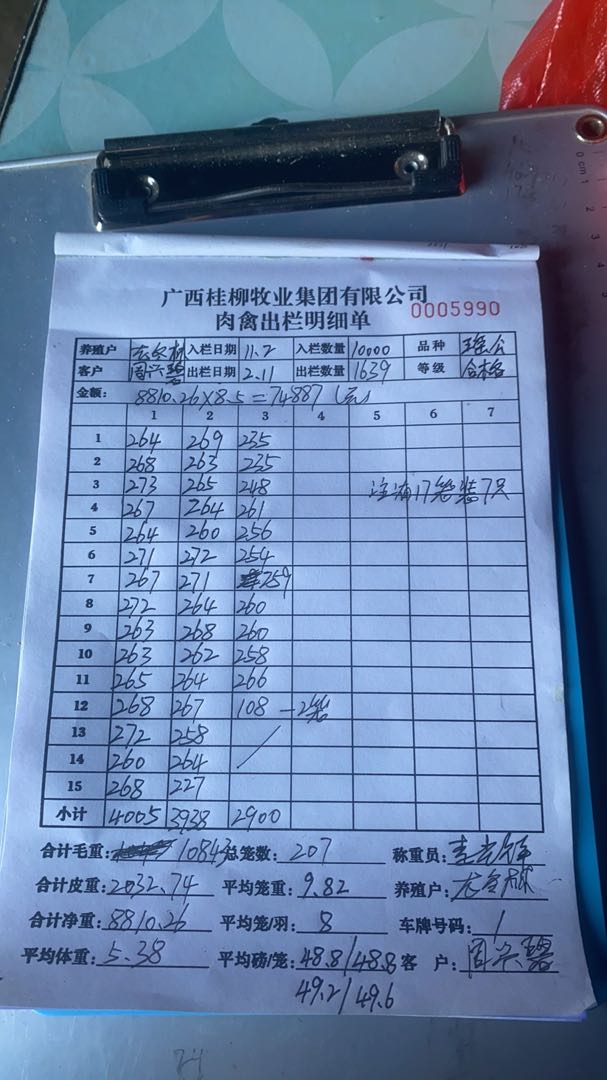 广西桂柳牧业集团有限公司
肉禽出栏明细单 0005990
养殖户 入栏日期 11.2 入栏数量 10000 品种 瑶公
客户 周兴碧 出栏日期 2.11 出栏数量 1639 等级 合格
金额: 8810.26×8.5=74887(元)
1 2 3 4 5 6 7
1 264 269 235
2 268 263 235
3 273 265 248 注:有17笼装7只
4 267 264 261
5 264 260 256
6 271 272 254
7 267 271 259
8 272 264 260
9 263 268 260
10 263 262 258
11 265 264 266
12 268 267 108 —2笼
13 272 258
14 260 264
15 268 227
小计 4005 3938 2900
合计毛重: 10843 总笼数: 207 称重员:
合计皮重: 2032.74 平均笼重: 9.82 养殖户:
合计净重: 8810.26 平均笼/羽: 8 车牌号码: 1
平均体重: 5.38 平均磅/笼: 48.8/48.8 客 户: 周兴碧
49.2/49.6